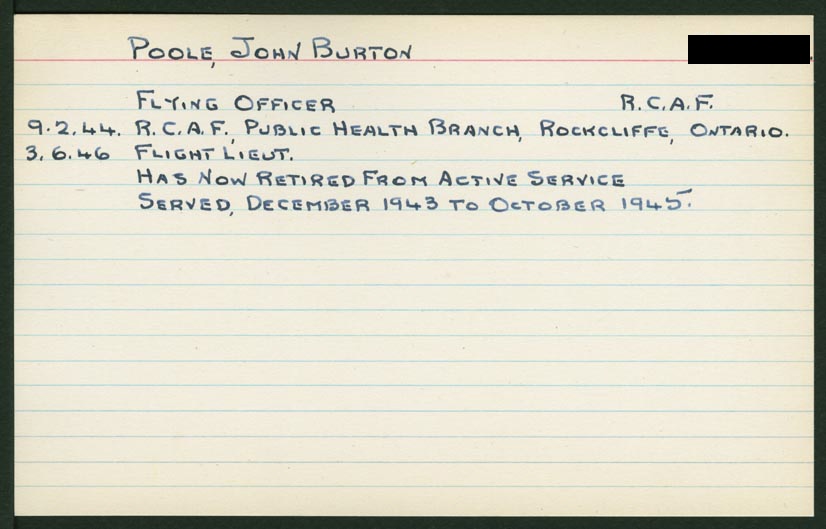 POOLE, JOHN BURTON
FLYING OFFICER R.C.A.F.
9.2.44. R.C.A.F., PUBLIC HEALTH BRANCH, ROCKCLIFFE, ONTARIO.
3.6.46 FLIGHT LIEUT.
HAS NOW RETIRED FROM ACTIVE SERVICE
SERVED, DECEMBER 1943 TO OCTOBER 1945.